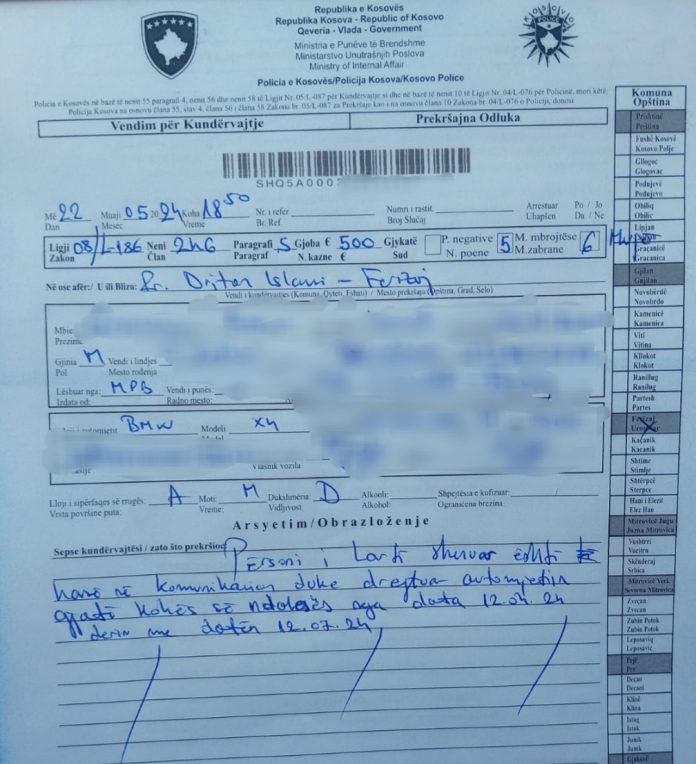 Republika e Kosovës
Republika Kosova - Republic of Kosovo
Qeveria - Vlada - Government
Ministria e Punëve të Brendshme
Ministarstvo Unutrašnjih Poslova
Ministry of Internal Affair
Policia e Kosovës/Policija Kosova/Kosovo Police
KOSOVO
POLICE
Policia e Kosovës në bazë të nenit 55 paragrafi 4, nenit 56 dhe nenit 58 të Ligjit Nr. 05/L-087 për Kundërvajtje si dhe në bazë të nenit 10 të Ligjit Nr. 04/L-076 për Policinë, mori këtë
Policija Kosova na osnovu člana 55, stav 4, člana 56 i člana 58 Zakona br. 05/L-087 za Prekršaje kao i na osnovu člana 10 Zakona br. 04/L-076 o Policiji, donosi
Vendim për Kundërvajtje Prekršajna Odluka
SHQ5A000
Më 22 Muaji 05 2024 Koha 18 50 Nr. i refer. Numri i rastit. Arrestuar. Po / Jo
Dan Mesec Vreme Br. Ref Broj Slučaj Uhapšen Da / Ne
Ligji 08/L-186 Neni 246 Paragrafi 5 Gjoba € 500 Gjykatë P. negative 5 M. mbrojtëse 6
Zakon Član Paragraf N. kazne € Sud N. poene M.zabrane
Në ose afër:/ U ili Blizu: Rr. Dritan Islami - Ferizaj
Vendi i kundërvajtjes (Komuna, Qyteti, Fshati) / Mesto prekršaja (Opština, Grad, Selo)
Mbie
Prezime
Gjinia M Vendi i lindjes
Pol Mesto rođenja
Lëshuar nga: MPB Vendi i punës:
Izdata od: Radno mesto:
BMW Modeli X4
Vlasnik vozila
Lloji i sipërfaqes së rrugës: A Moti: M Dukshmëria: D Alkooli: Shpejtësia e kufizuar:
Vrsta površine puta: Vreme: Vidljivost: Alkohol: Ograničena brzina.
Arsyetim/Obrazloženje
Sepse kundërvajtësi / zato što prekršioc Personi i lartë shenuar është
hasë në komunikacion duke drejtuar automjetin
gjatë kohës së ndalesës nga data 12.04.24
deri me datën 12.07.24
Komuna
Opština
Prishtinë
Priština
Fushë Kosovë
Kosovo Polje
Gllogoc
Glogovac
Podujevë
Podujevo
Obiliq
Obilic
Lipjan
Graçanicë
Gracanica
Gjilan
Gnjilan
Novobërdë
Novobrdo
Kamenicë
Kamenica
Viti
Vitina
Kllokot
Klokot
Ranillug
Ranilug
Partesh
Partes
Ferizaj
X
Kaçanik
Kacanik
Shtime
Stimlje
Shtërpcë
Sterpce
Hani i Elezit
Elez Han
Mitrovicë Jugu
Juzna Mitrovica
Vushtrri
Vucitrn
Skënderaj
Srbica
Mitrovicë Veri
Severna Mitrovica
Zveçan
Zvecan
Zubin Potok
Zubin Potok
Leposaviq
Leposavic
Pejë
Pec
Decan
Decani
Klinë
Klina
Istog
Istok
Junik
Junik
Gjakovë